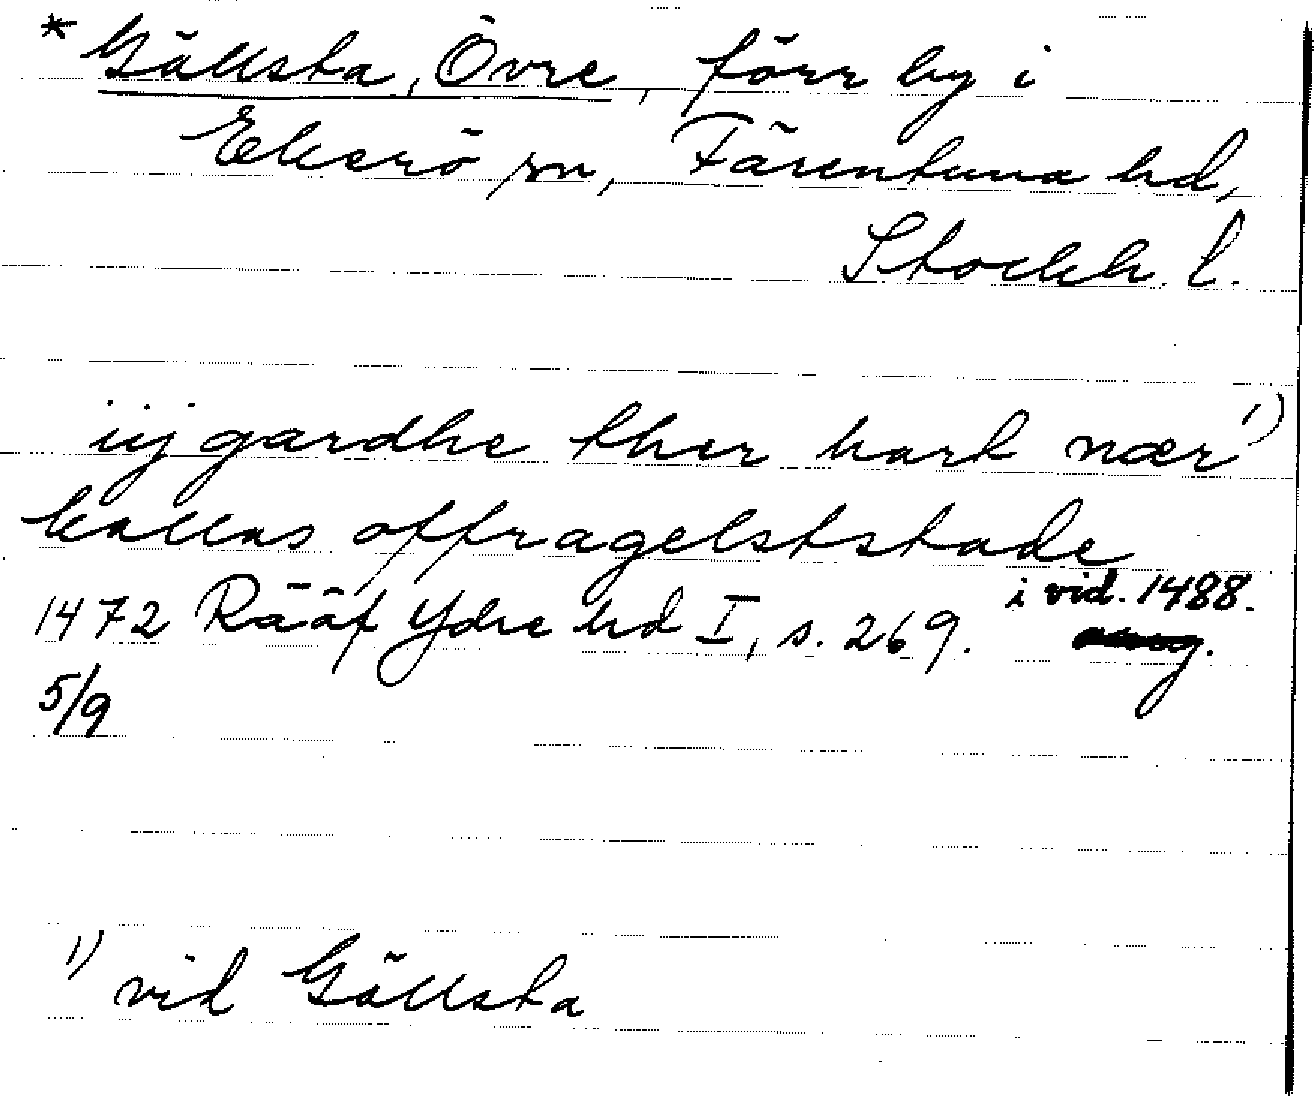 * Gällsta, Övre, förr by i
Ekerö sn, Färentuna hd,
Stockh. l.
iij gardhe ther hart nær 1)
kallas offragelststade
1472 Rääf Ydre hd I, s. 269. i vid. 1488.
5/9
1) vid Gällsta